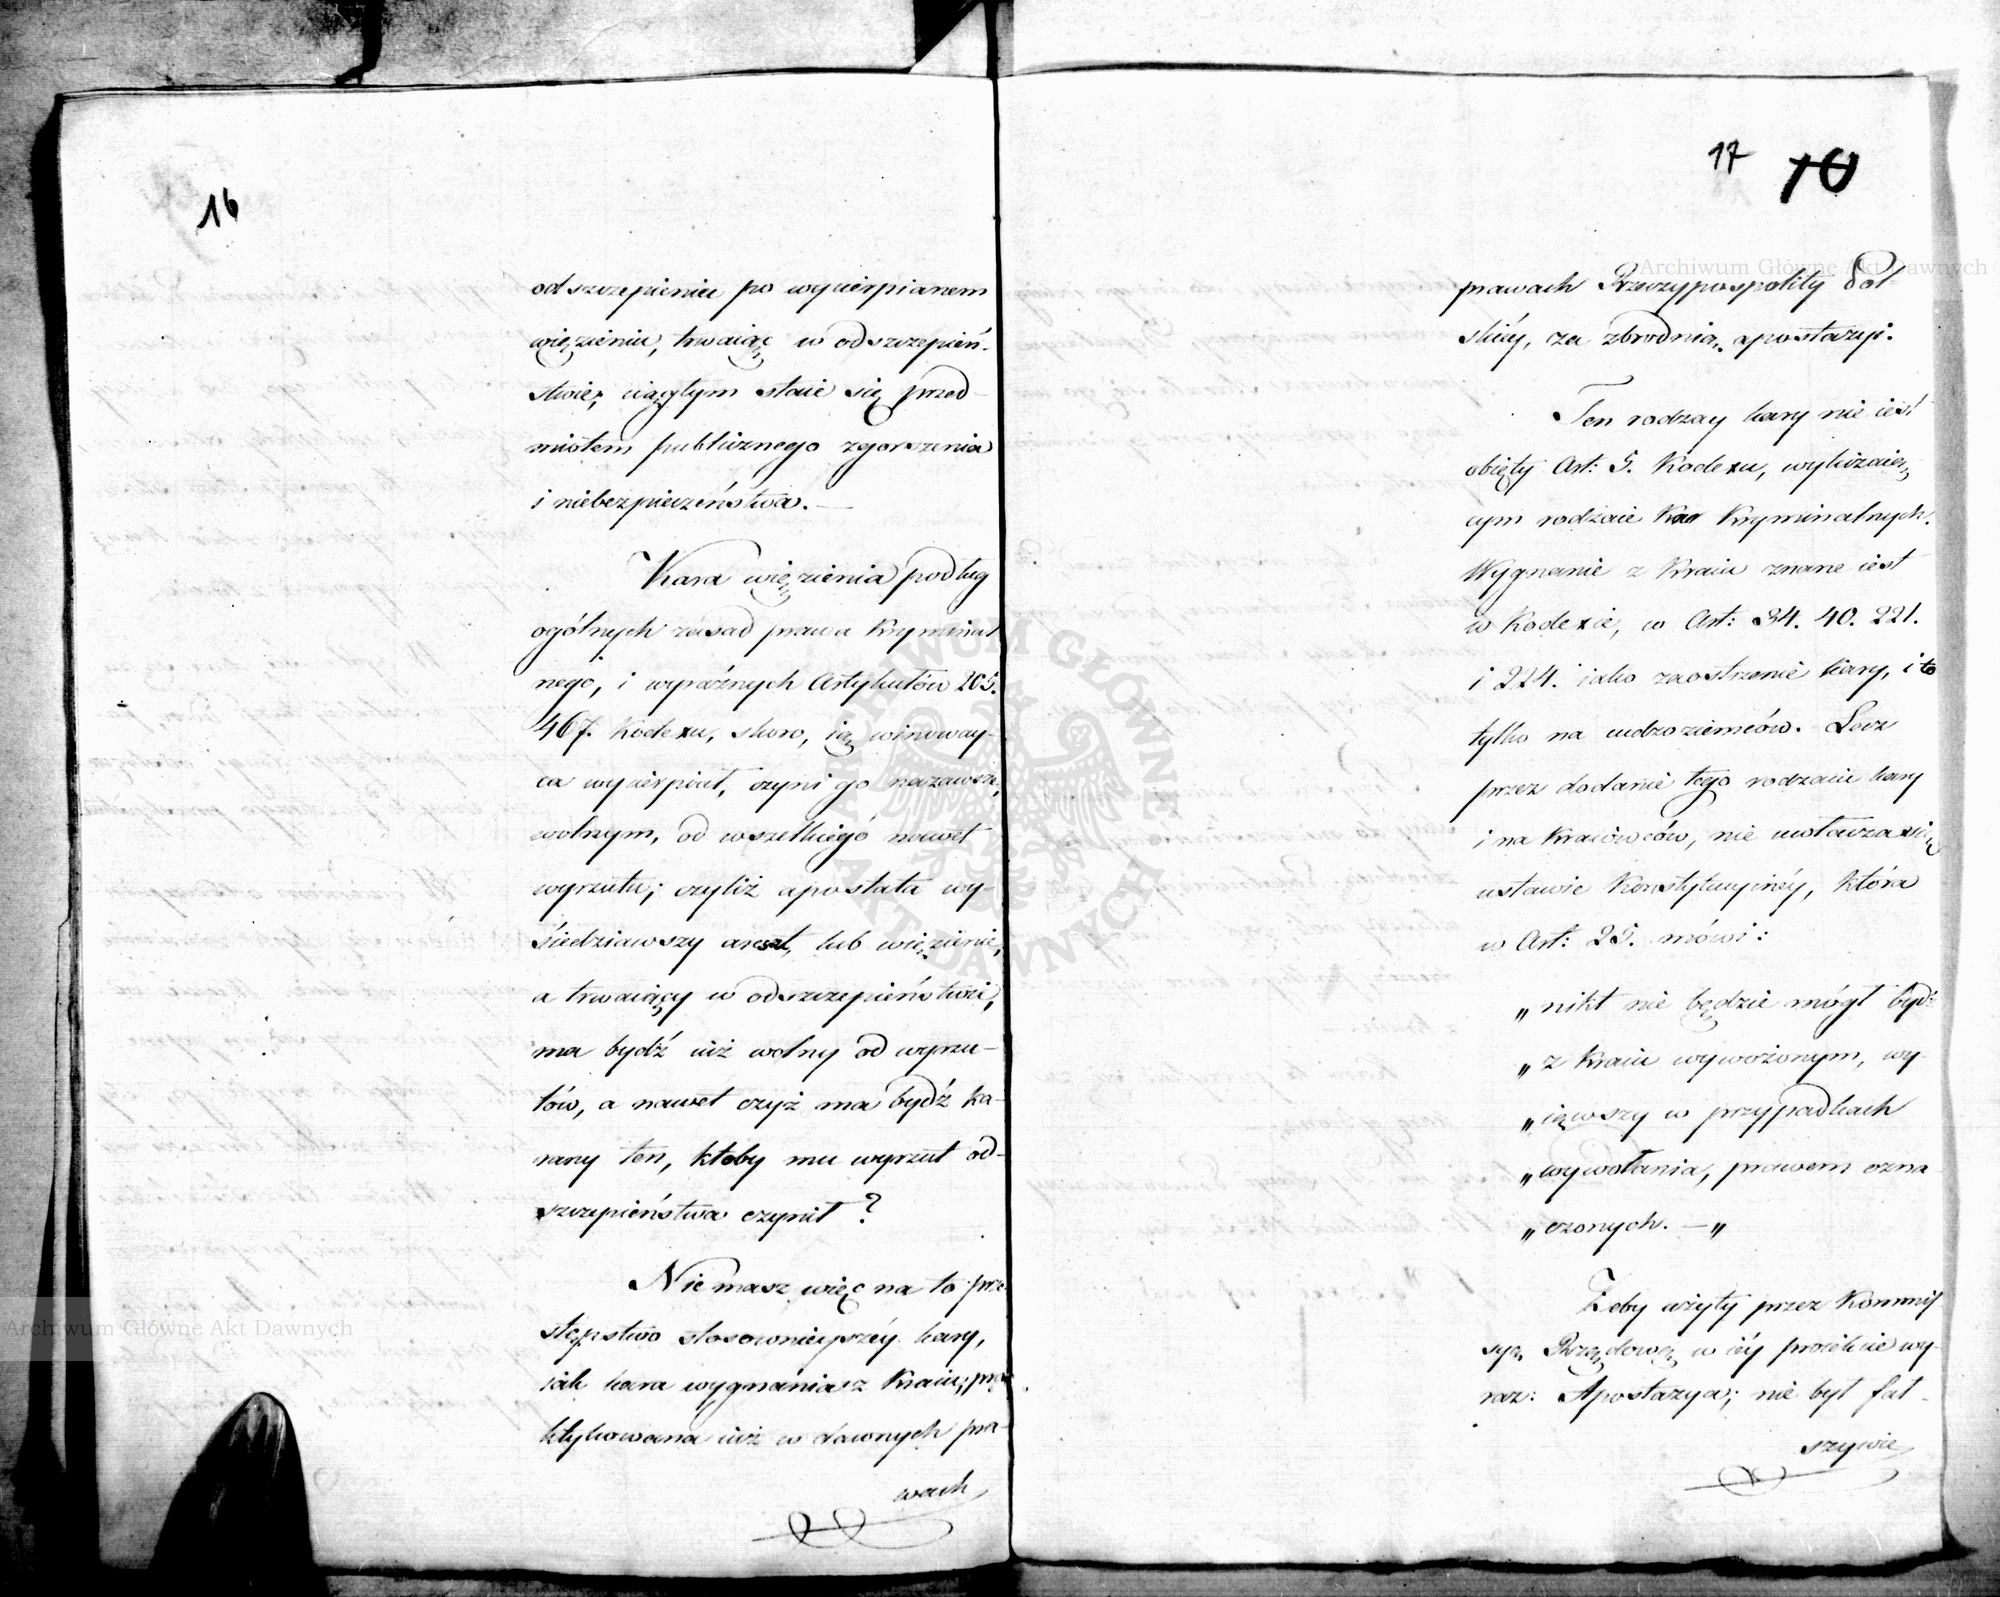 16
odszczepieniu po wycierpianem
więzieniu, trwaiąc w odszczepień-
stwie, ciągłym staie się przed-
miotem publicznego zgorszenia
i niebezpieczeństwa. —
Kara więzienia podług
ogólnych zasad prawa Kryminal
nego, i wyraźnych Artykułów 205.
467. Kodexu, skoro, ią winoway-
ca wycierpiał, czyni go nazawsze,
wolnym, od wszelkiego nawet
wyrzutu; czyliż apostata wy-
siedziawszy areszt, lub więzienie,
a trwaiący w odszczepieństwie,
ma bydź iuż wolny od wyrzu-
tów, a nawet czyż ma bydź ka-
rany ten, ktoby mu wyrzut od-
szczepieństwa czynił?
Nie masz więc na to prze-
stępstwo stosownieyszéy kary,
iak kara wygnania z Kraiu, pra
ktykowana iuż w dawnych pra-
wach
17 10
prawach Rzeczypospolity Pol-
skiéy, za zbrodnią apostazyi.
Ten rodzay kary nie iest
obięty Art: 5. Kodexu, wyliczaią-
cym rodzaie Kar Kryminalnych.
Wygnanie z Kraiu znane iest
w Kodexie, w Art: 34. 40. 221.
i 224. iako zaostrzenie kary, i to
tylko na cudzoziemców. Lecz
przez dodanie tego rodzaiu kary
i na Kraiowców, nie uwłacza się
ustawie Konstytucyinéy, która
w Art: 25. mówi:
„nikt nie będzie mógł bydź
„z Kraiu wywożonym, wy-
„iąwszy w przypadkach
„wywołania, prawem ozna
„czonych. — „
Żeby użyty przez Kommis
syą Rządową w iéy proiekcie wy-
raz: Apostazya; nie był fał-
szywie
Archiwum Główne Akt Dawnych
Archiwum Główne Akt Dawnych
ARCHIWUM GŁÓWNE AKT DAWNYCH